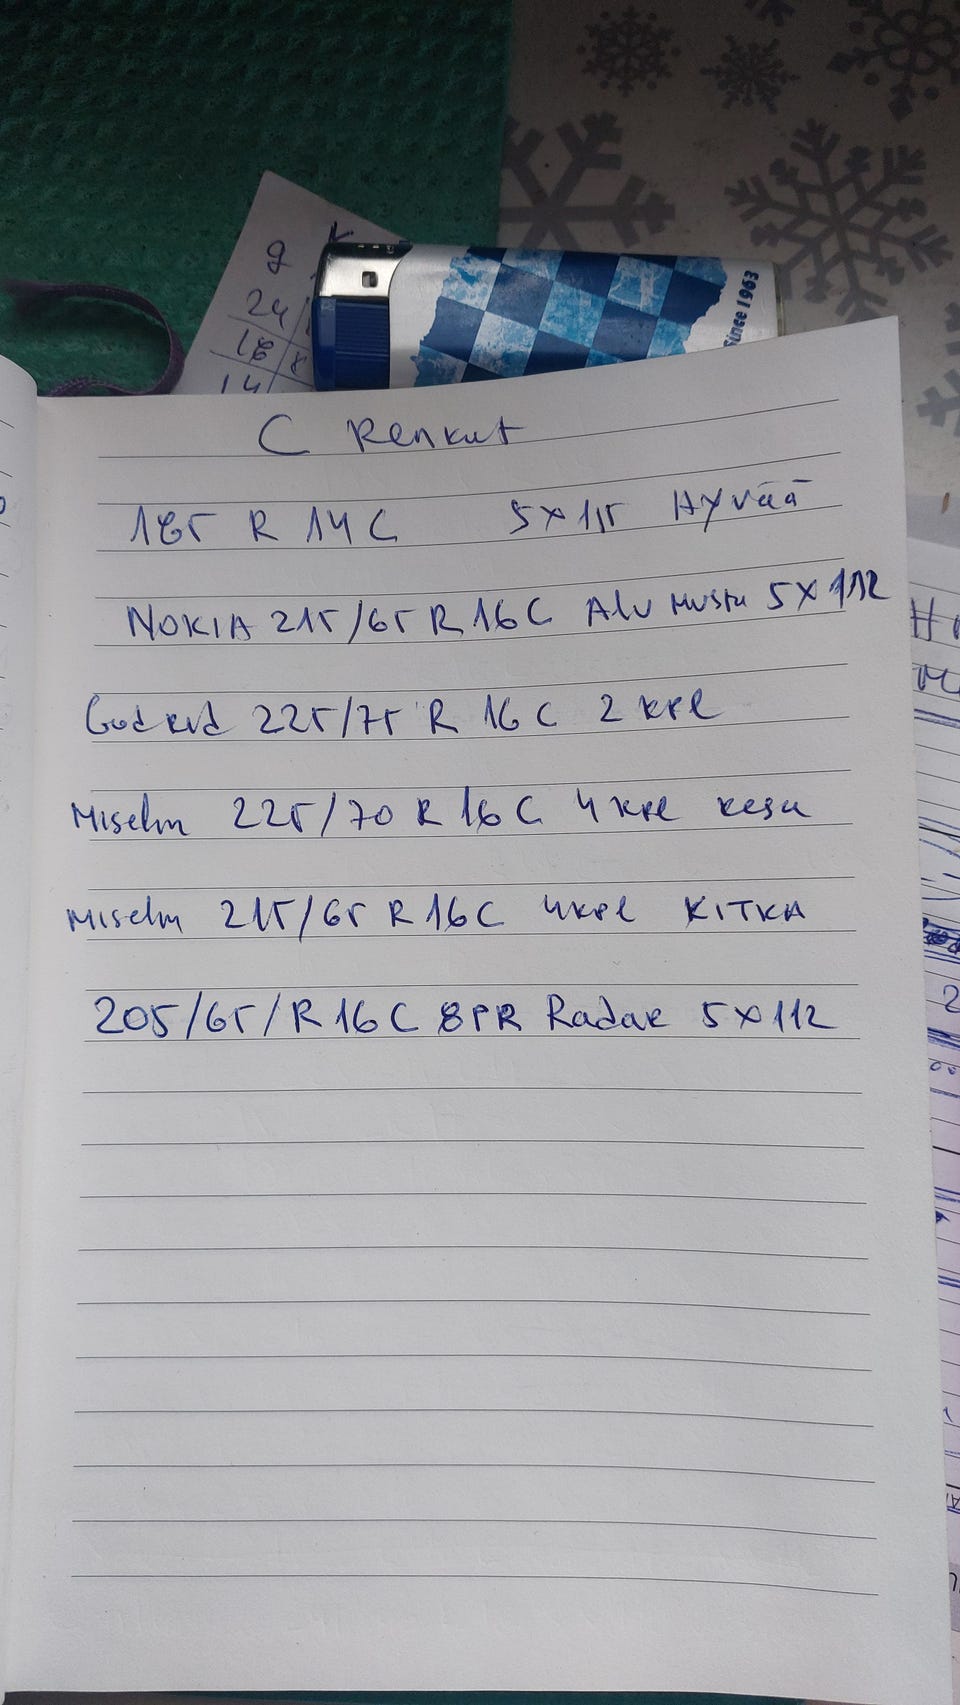 24
16 8
14
Since 1963
C Renkut
185 R 14 C 5x115 Hyvää
NOKIA 215/65 R 16 C Alu musta 5x112
225/75 R 16 C 2 kpl
Miselin 225/70 R 16 C 4 kpl kesä
Miselin 215/65 R 16 C 4 kpl KITKA
205/65/R 16 C 8PR Radar 5x112